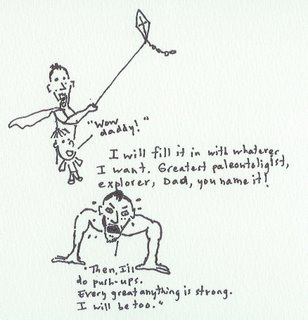 "Wow
daddy!"
I will fill it in with whatever
I want. Greatest paleontoligist,
explorer, Dad, you name it!
"Then, I'll
do push-ups.
Every great anything is strong.
I will be too."